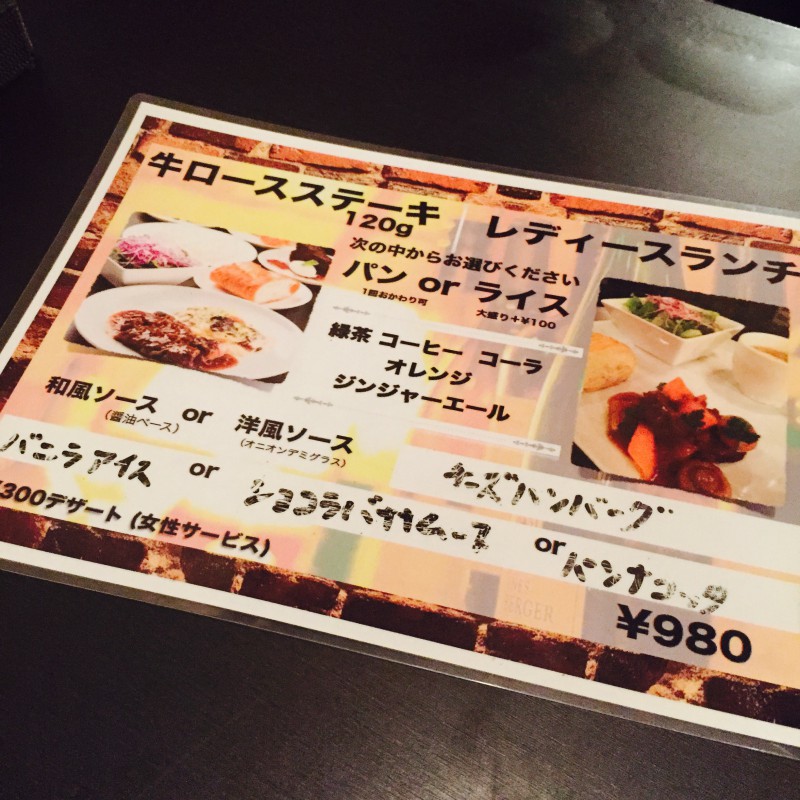 牛ロースステーキ
120g
レディースランチ
次の中からお選びください
パン or ライス
1回おかわり可
大盛り+¥100
緑茶 コーヒー コーラ
オレンジ
ジンジャーエール
和風ソース or 洋風ソース
(醤油ベース)
(オニオンデミグラス)
チーズハンバーグ
バニラアイス or ショコラバナナムース or パンナコッタ
¥300デザート (女性サービス)
¥980